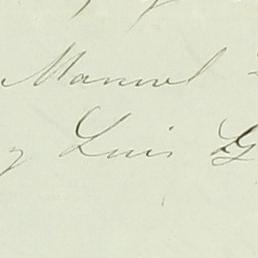 Manuel
y Luis G